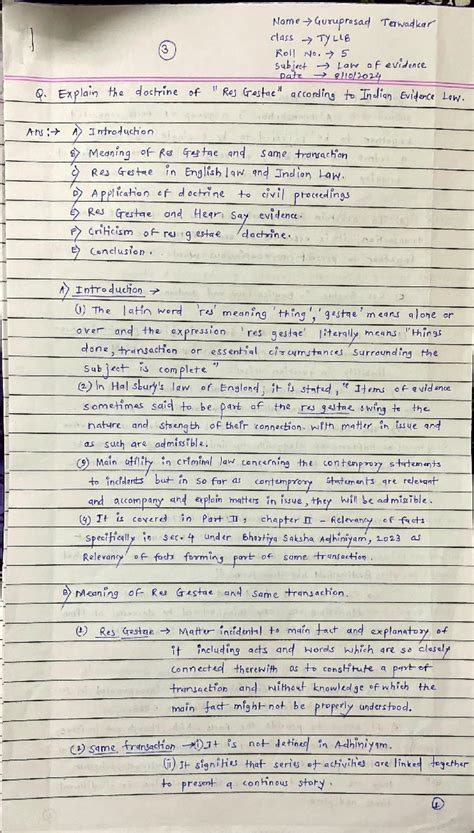 1
3
Name → Guruprasad Terwadkar
class → TYLLB
Roll No. → 5
subject → Law of evidence
Date → 8/10/2024
Q. Explain the doctrine of " Res Gestae" according to Indian Evidence Law.
Ans :→ A) Introduction
B) Meaning of Res Gestae and same transaction
C) Res Gestae in English law and Indian Law.
D) Application of doctrine to civil proceedings
E) Res Gestae and Hear, Say evidence.
F) Criticism of res gestae doctrine.
E) Conclusion.
A) Introduction →
(1) The latin word 'res' meaning 'thing', 'gestae' means alone or
over and the expression 'res gestae' literally means "things
done, transaction or essential circumstances surrounding the
subject is complete"
(2) In Halsbury's law of England, it is stated, " Items of evidence
sometimes said to be part of the res gestae owing to the
nature and strength of their connection with matter in issue and
as such are admissible.
(3) Main utility in criminal law concerning the contemprory statements
to incidents but in so far as contemprory statements are relevant
and accompany and explain matters in issue, they will be admissible.
(4) It is covered in Part II, chapter II - Relevancy of facts
specifically in sec. 4 under Bhartiya Saksha Adhiniyam, 2023 as
Relevancy of facts forming part of same transaction.
B) Meaning of Res Gestae and same transaction.
(1) Res Gestae → Matter incidental to main fact and explanatory of
it including acts and words which are so closely
connected therewith as to constitute a part of
transaction and without knowledge of which the
main fact might not be properly understood.
(2) same transaction → (i) It is not defined in Adhiniyam.
(ii) It signities that series of activities are linked together
to present a continous story.